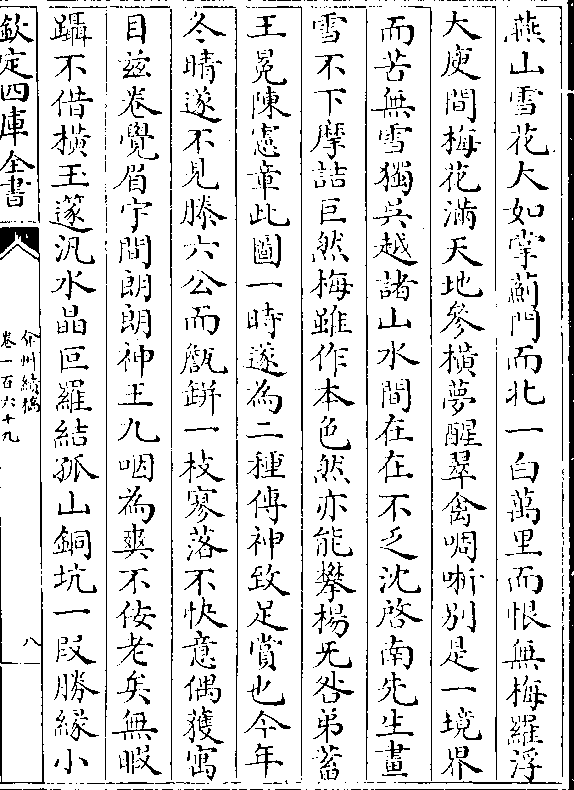 燕山雪花大如掌薊門而北一白萬里而恨無梅羅浮
大庾間梅花滿天地參橫夢醒翠禽啁哳别是一境界
而苦無雪獨吳越諸山水間在在不乏沈啓南先生畫
雪不下摩詰巨然梅雖作本色然亦能攀楊无咎弟蓄
王冕陳憲章此圖一時遂為二種傳神致足賞也今年
冬晴遂不見滕六公而甋缾一枝寥落不快意偶獲寓
目兹卷覺眉宇間朗朗神王凡咽為爽不佞老矣無暇
躡不借橫玉篴汎水晶叵羅結孤山銅坑一段勝緣小
欽定四庫全書
弇州續稿
卷一百六十九
八